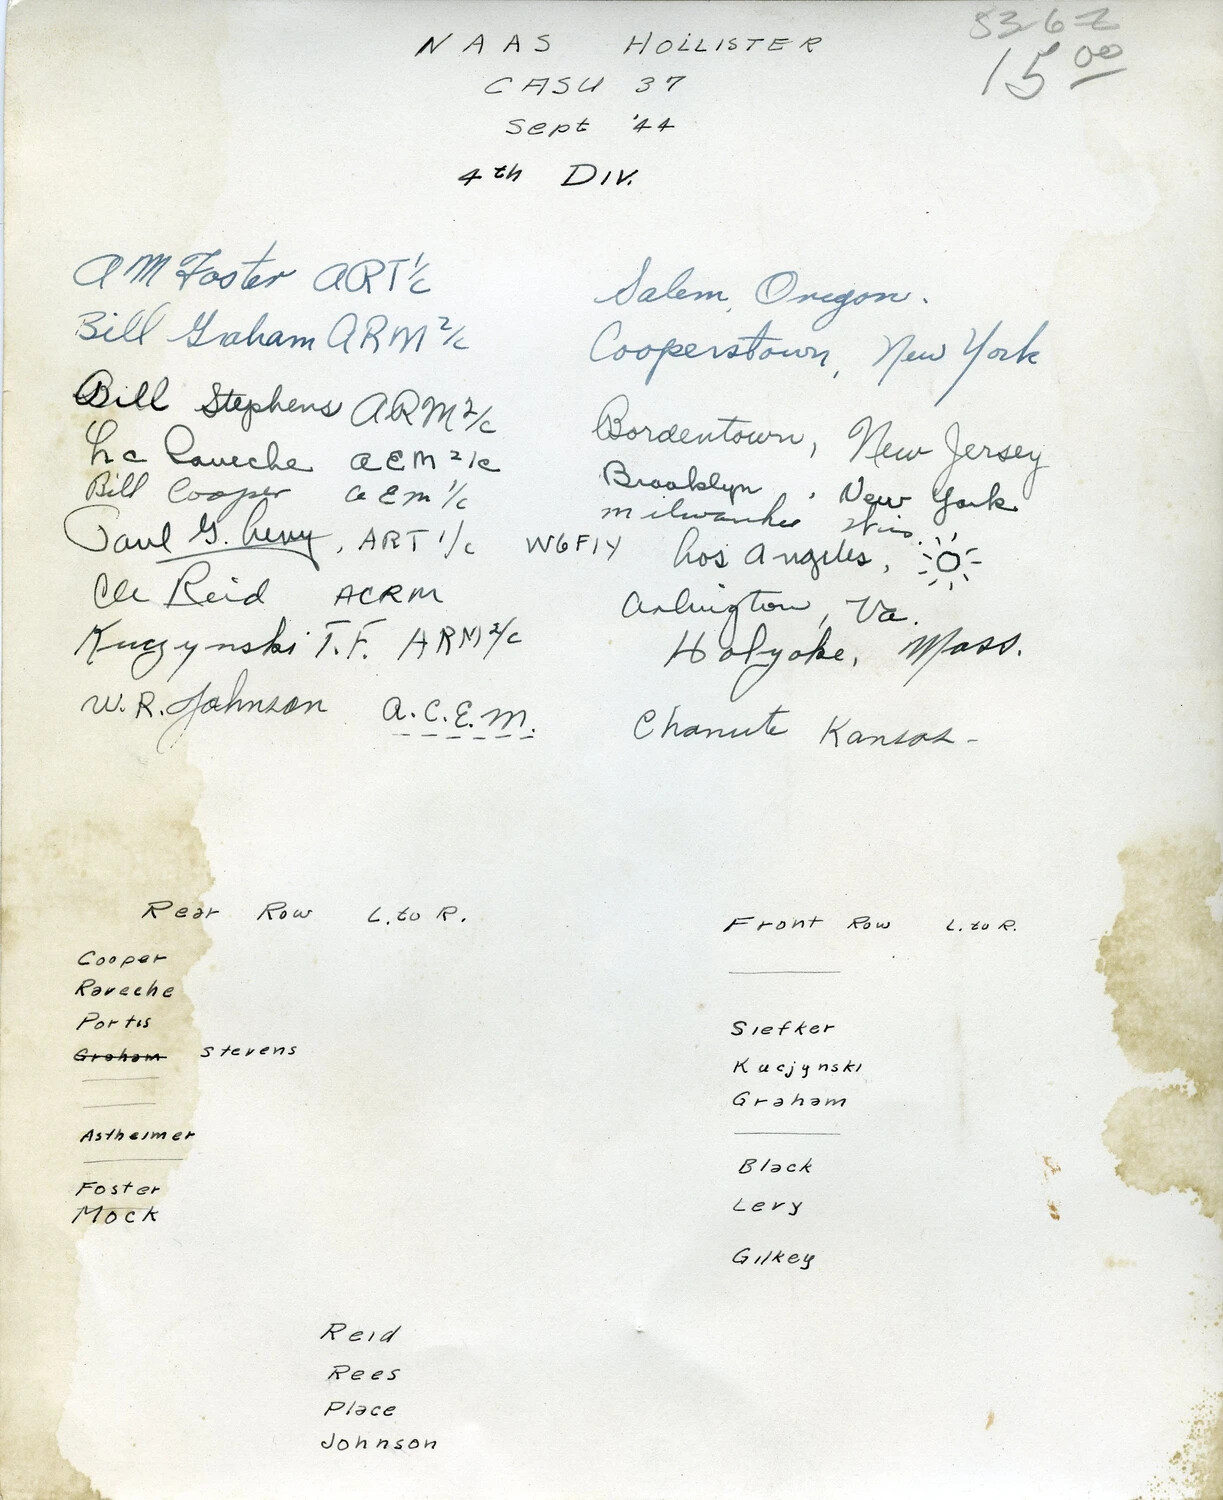 8362
15 00
NAAS HOLLISTER
CASU 37
Sept '44
4th DIV.
A M Foster ART 1/c Salem, Oregon.
Bill Graham ARM 2/c Cooperstown, New York
Bill Stephens ARM 2/c Bordentown, New Jersey
Raveche AEM 2/c Brooklyn, New York.
Bill Cooper AEM 1/c Milwaukee Wis.
Paul G. Levy, ART 1/c W6FIY Los Angeles,
Reid ACRM Arlington, Va.
Kuczynski T.F. ARM 2/c Holyoke, Mass.
W.R. Johnson A.C.E.M. Chanute Kansas -
Rear Row L. to R.
Cooper
Raveche
Portis
Graham Stevens
Astheimer
Foster
Mock
Front Row L. to R.
Siefker
Kucjynski
Graham
Black
Levy
Gilkey
Reid
Rees
Place
Johnson